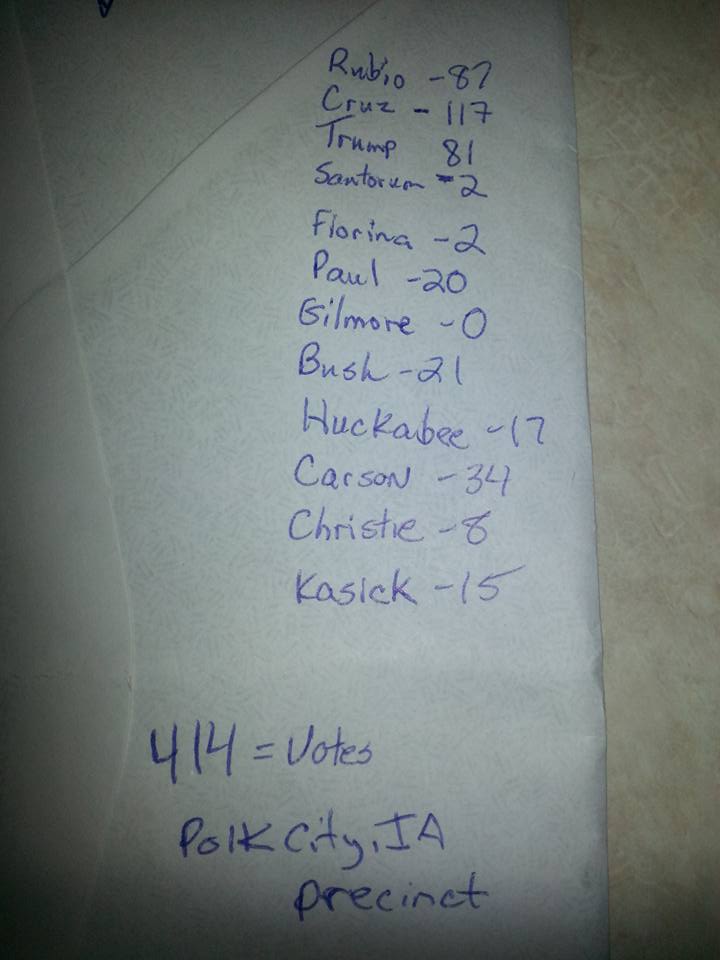 Rubio - 87
Cruz - 117
Trump 81
Santorum - 2
Fiorina - 2
Paul - 20
Gilmore - 0
Bush - 21
Huckabee - 17
Carson - 34
Christie - 8
Kasick - 15
414 = Votes
Polk City, IA
precinct